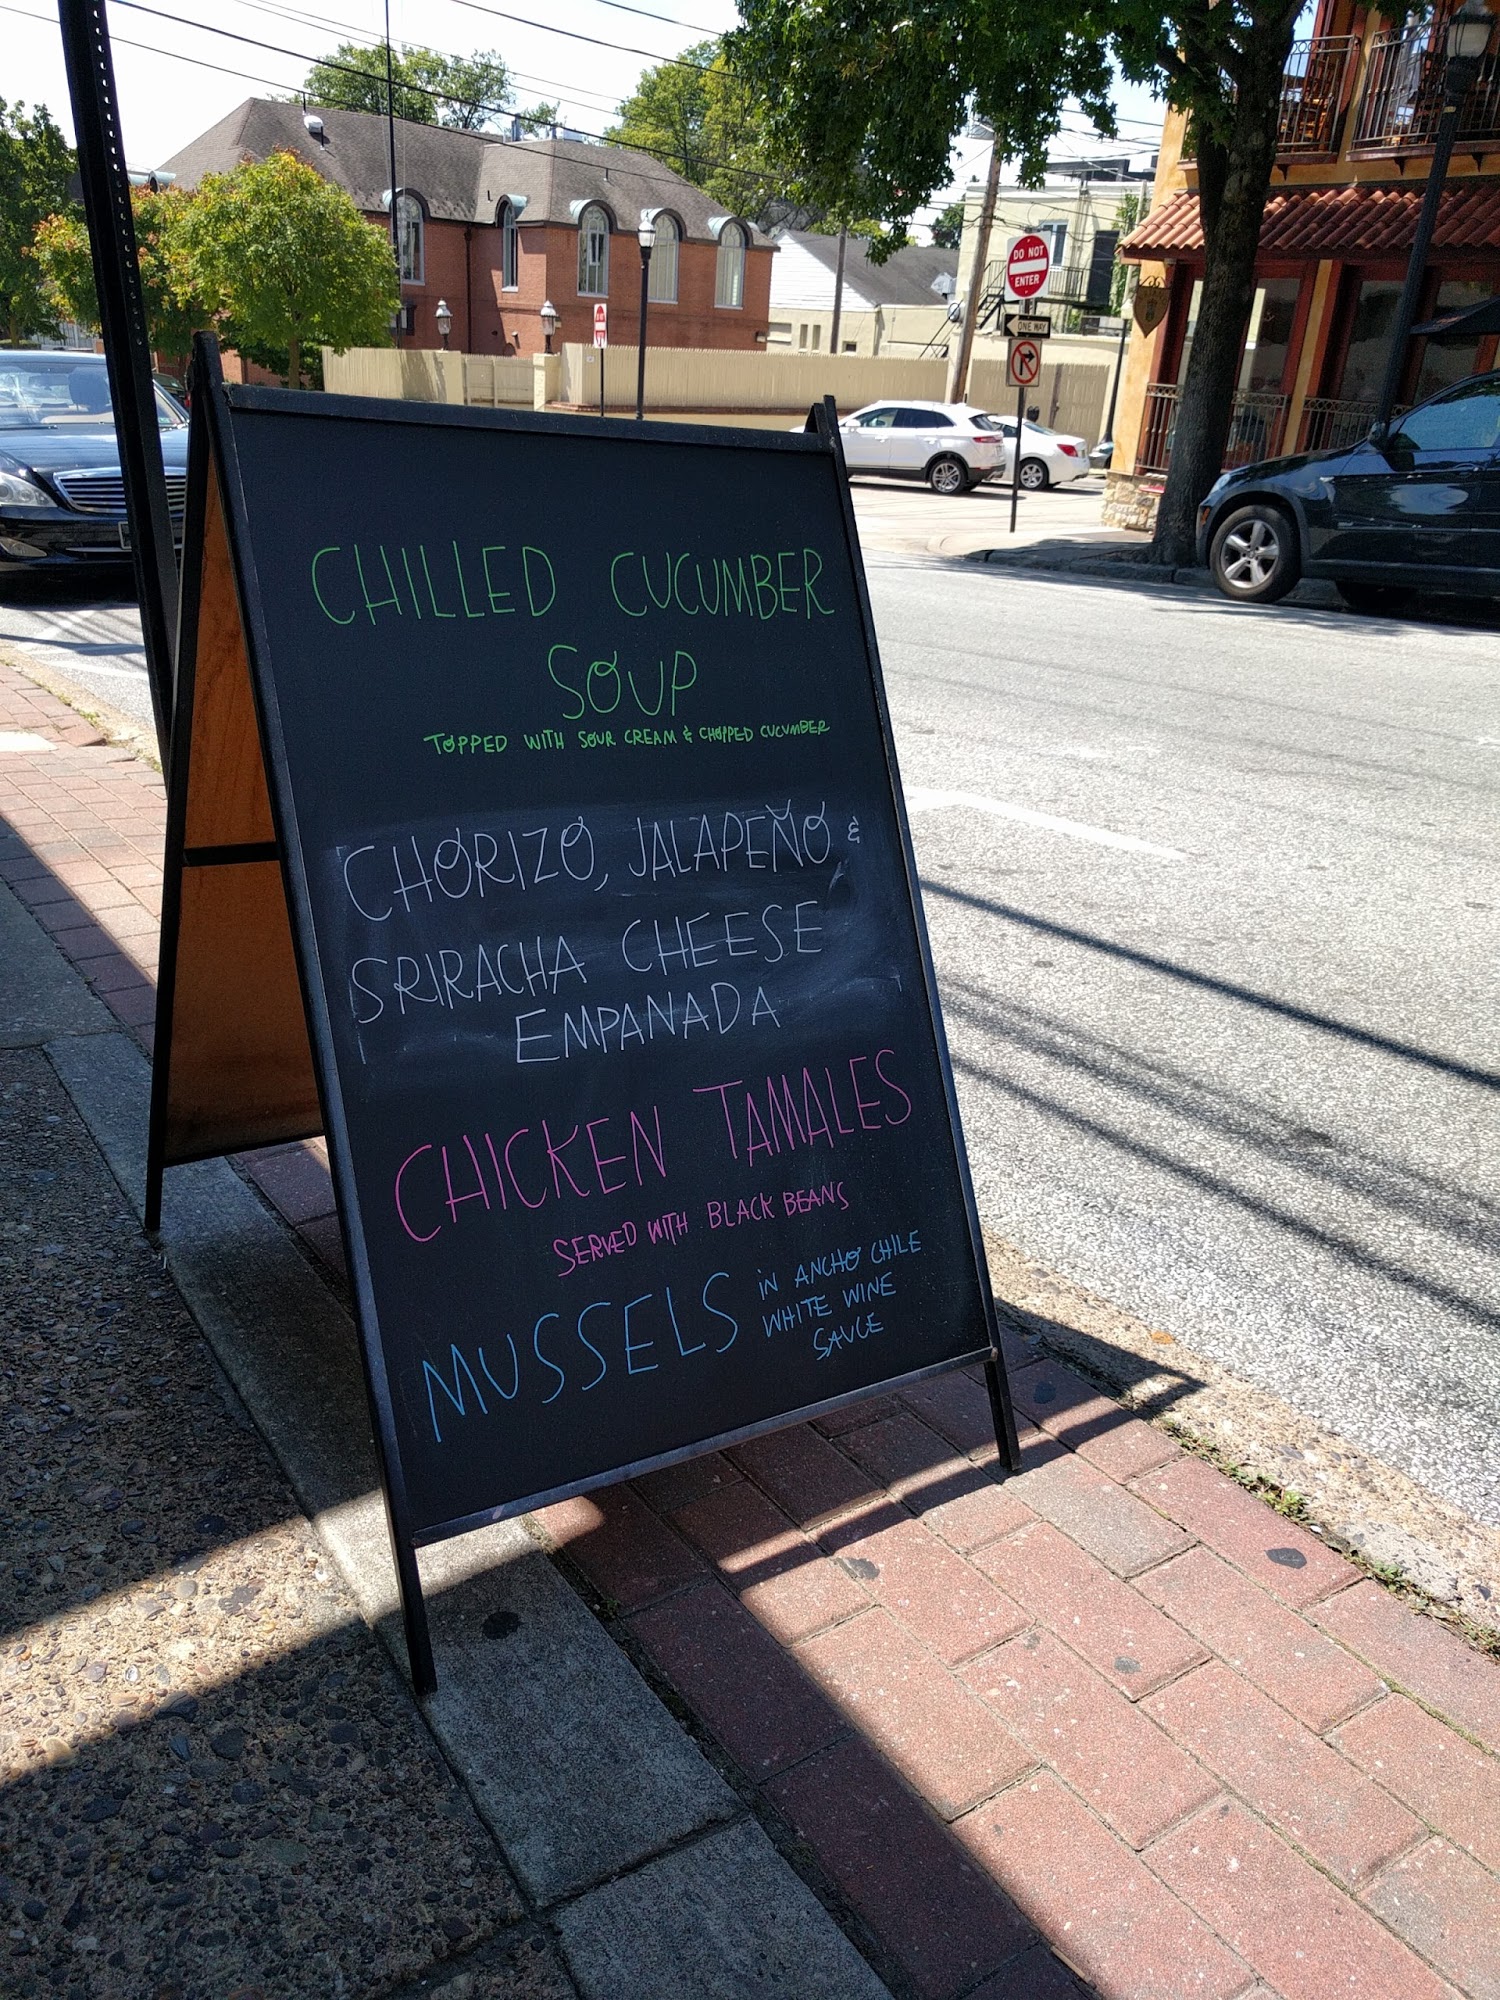 DO NOT
ENTER
ONE WAY
CHILLED CUCUMBER
SOUP
TOPPED WITH SOUR CREAM & CHOPPED CUCUMBER
CHORIZO, JALAPEÑO &
SRIRACHA CHEESE
EMPANADA
CHICKEN TAMALES
SERVED WITH BLACK BEANS
MUSSELS IN ANCHO CHILE
WHITE WINE
SAUCE